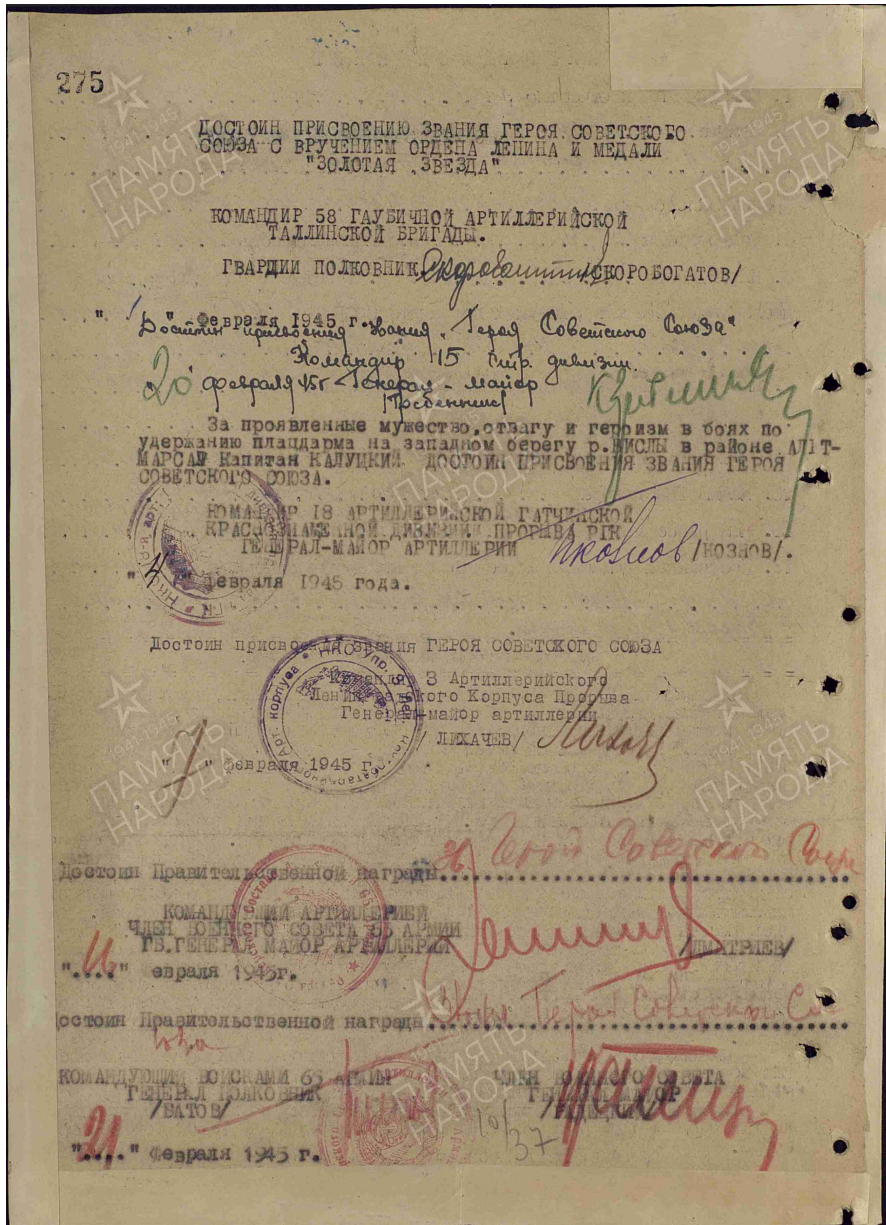 275
ДОСТОИН ПРИСВОЕНИЮ ЗВАНИЯ ГЕРОЯ СОВЕТСКОГО
СОЮЗА С ВРУЧЕНИЕМ ОРДЕНА ЛЕНИНА И МЕДАЛИ
"ЗОЛОТАЯ ЗВЕЗДА"
КОМАНДИР 58 ГАУБИЧНОЙ АРТИЛЛЕРИЙСКОЙ
ТАЛЛИНСКОЙ БРИГАДЫ.
ГВАРДИИ ПОЛКОВНИК /СКОРОБОГАТОВ/
" " февраля 1945 г.
Достоин присвоения звания "Героя Советского Союза"
Командир 15 стр. дивизии
20 февраля 45г Генерал-майор
/Гребенник/
За проявленные мужество, отвагу и героизм в боях по
удержанию плацдарма на западном берегу р.ВИСЛЫ в районе АЛТ-
МАРСАУ Капитан КАЛУЦКИЙ ДОСТОИН ПРИСВОЕНИЯ ЗВАНИЯ ГЕРОЯ
СОВЕТСКОГО СОЮЗА.
КОМАНДИР 18 АРТИЛЛЕРИЙСКОЙ ГАТЧИНСКОЙ
КРАСНОЗНАМЕННОЙ ДИВИЗИИ ПРОРЫВА РГК
ГЕНЕРАЛ-МАЙОР АРТИЛЛЕРИИ /КОЗНОВ/.
"4" февраля 1945 года.
Достоин присвоения звания ГЕРОЯ СОВЕТСКОГО СОЮЗА
Командир 3 Артиллерийского
Ленинградского Корпуса Прорыва
Генерал-майор артиллерии
/ЛИХАЧЕВ/
"7" февраля 1945 г.
Достоин Правительственной награды Зв. Герой Советского Союза
КОМАНДУЮЩИЙ АРТИЛЛЕРИЕЙ
ЧЛЕН ВОЕННОГО СОВЕТА 65 АРМИИ
ГВ.ГЕНЕРАЛ МАЙОР АРТИЛЛЕРИИ /ДМИТРИЕВ/
"...." евраля 1945г.
остоин Правительственной награды Героя Советского Со-
юза
КОМАНДУЮЩИЙ ВОЙСКАМИ 65 АРМИИ ЧЛЕН ВОЕННОГО СОВЕТА
ГЕНЕРАЛ ПОЛКОВНИК
/БАТОВ/
"21" февраля 1945 г.
ПАМЯТЬ НАРОДА
1941-1945